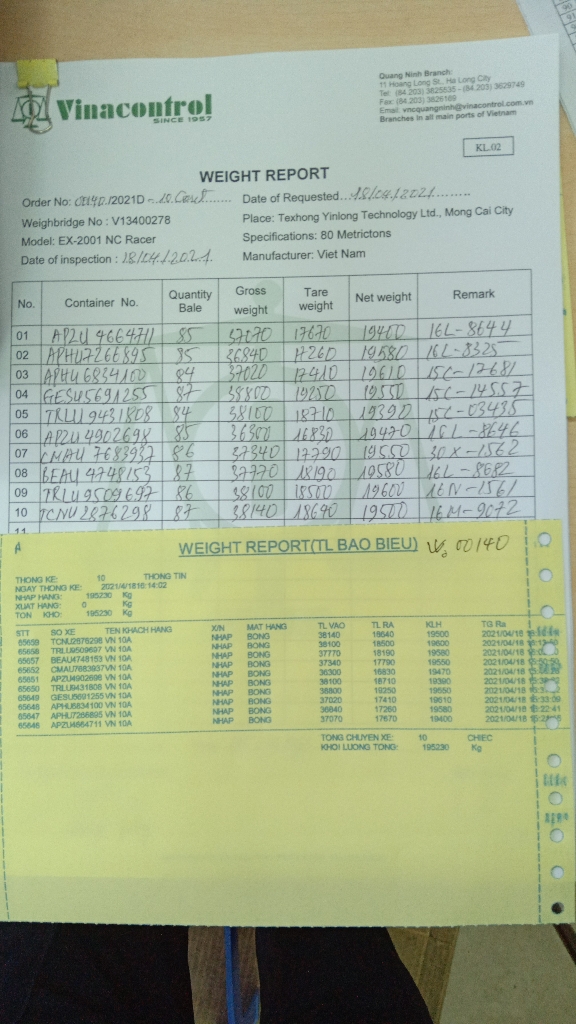 Vinacontrol
SINCE 1957
Quang Ninh Branch:
11 Hoang Long St., Ha Long City
Tel: (84.203) 3625635 - (84.203) 3629749
Fax: (84.203) 3626169
Email: vncquangninh@vinacontrol.com.vn
Branches in all main ports of Vietnam
KL.02
WEIGHT REPORT
Order No: 00140/2021D - 10 Cont Date of Requested 18/04/2021
Weighbridge No : V13400278 Place: Texhong Yinlong Technology Ltd., Mong Cai City
Model: EX-2001 NC Racer Specifications: 80 Metrictons
Date of inspection : 18/04/2021 Manufacturer: Viet Nam
No. Container No. Quantity Bale Gross weight Tare weight Net weight Remark
01 APZU 4664711 85 37070 17670 19400 16L-8644
02 APHU7266895 85 36840 17260 19580 16L-8325
03 APHU 6834100 84 37020 17410 19610 15C-17681
04 GESU5691255 87 38800 19250 19550 15C-14557
05 TRLU 9431808 84 38100 18710 19390 15C-03435
06 APZU 4902698 85 36300 16830 19470 16L-8646
07 CMAU 7683937 86 37340 17790 19550 30X-1562
08 BEAU 4748153 87 37770 18190 19580 16L-8682
09 TRLU 9509697 86 38100 18500 19600 16N-1561
10 TCNU 2876298 87 38140 18640 19500 16M-9072
11
A WEIGHT REPORT(TL BAO BIEU) 00140
THONG KE: 10 THONG TIN
NGAY THONG KE: 2021/4/1816:14:02
NHAP HANG: 195230 Kg
XUAT HANG: 0 Kg
TON KHO: 195230 Kg
STT SO XE TEN KHACH HANG X/N MAT HANG TL VAO TL RA KLH TG Ra
65659 TCNU2876298 VN 10A NHAP BONG 38140 18640 19500 2021/04/18
65658 TRLU9509697 VN 10A NHAP BONG 38100 18500 19600 2021/04/18
65657 BEAU4748153 VN 10A NHAP BONG 37770 18190 19580 2021/04/18
65652 CMAU7683937 VN 10A NHAP BONG 37340 17790 19550 2021/04/18
65651 APZU4902698 VN 10A NHAP BONG 36300 16830 19470 2021/04/18
65650 TRLU9431808 VN 10A NHAP BONG 38100 18710 19390 2021/04/18
65649 GESU5691255 VN 10A NHAP BONG 38800 19250 19550 2021/04/18
65648 APHU6834100 VN 10A NHAP BONG 37020 17410 19610 2021/04/18
65647 APHU7266895 VN 10A NHAP BONG 36840 17260 19580 2021/04/18
65646 APZU4664711 VN 10A NHAP BONG 37070 17670 19400 2021/04/18
TONG CHUYEN XE: 10 CHIEC
KHOI LUONG TONG: 195230 Kg